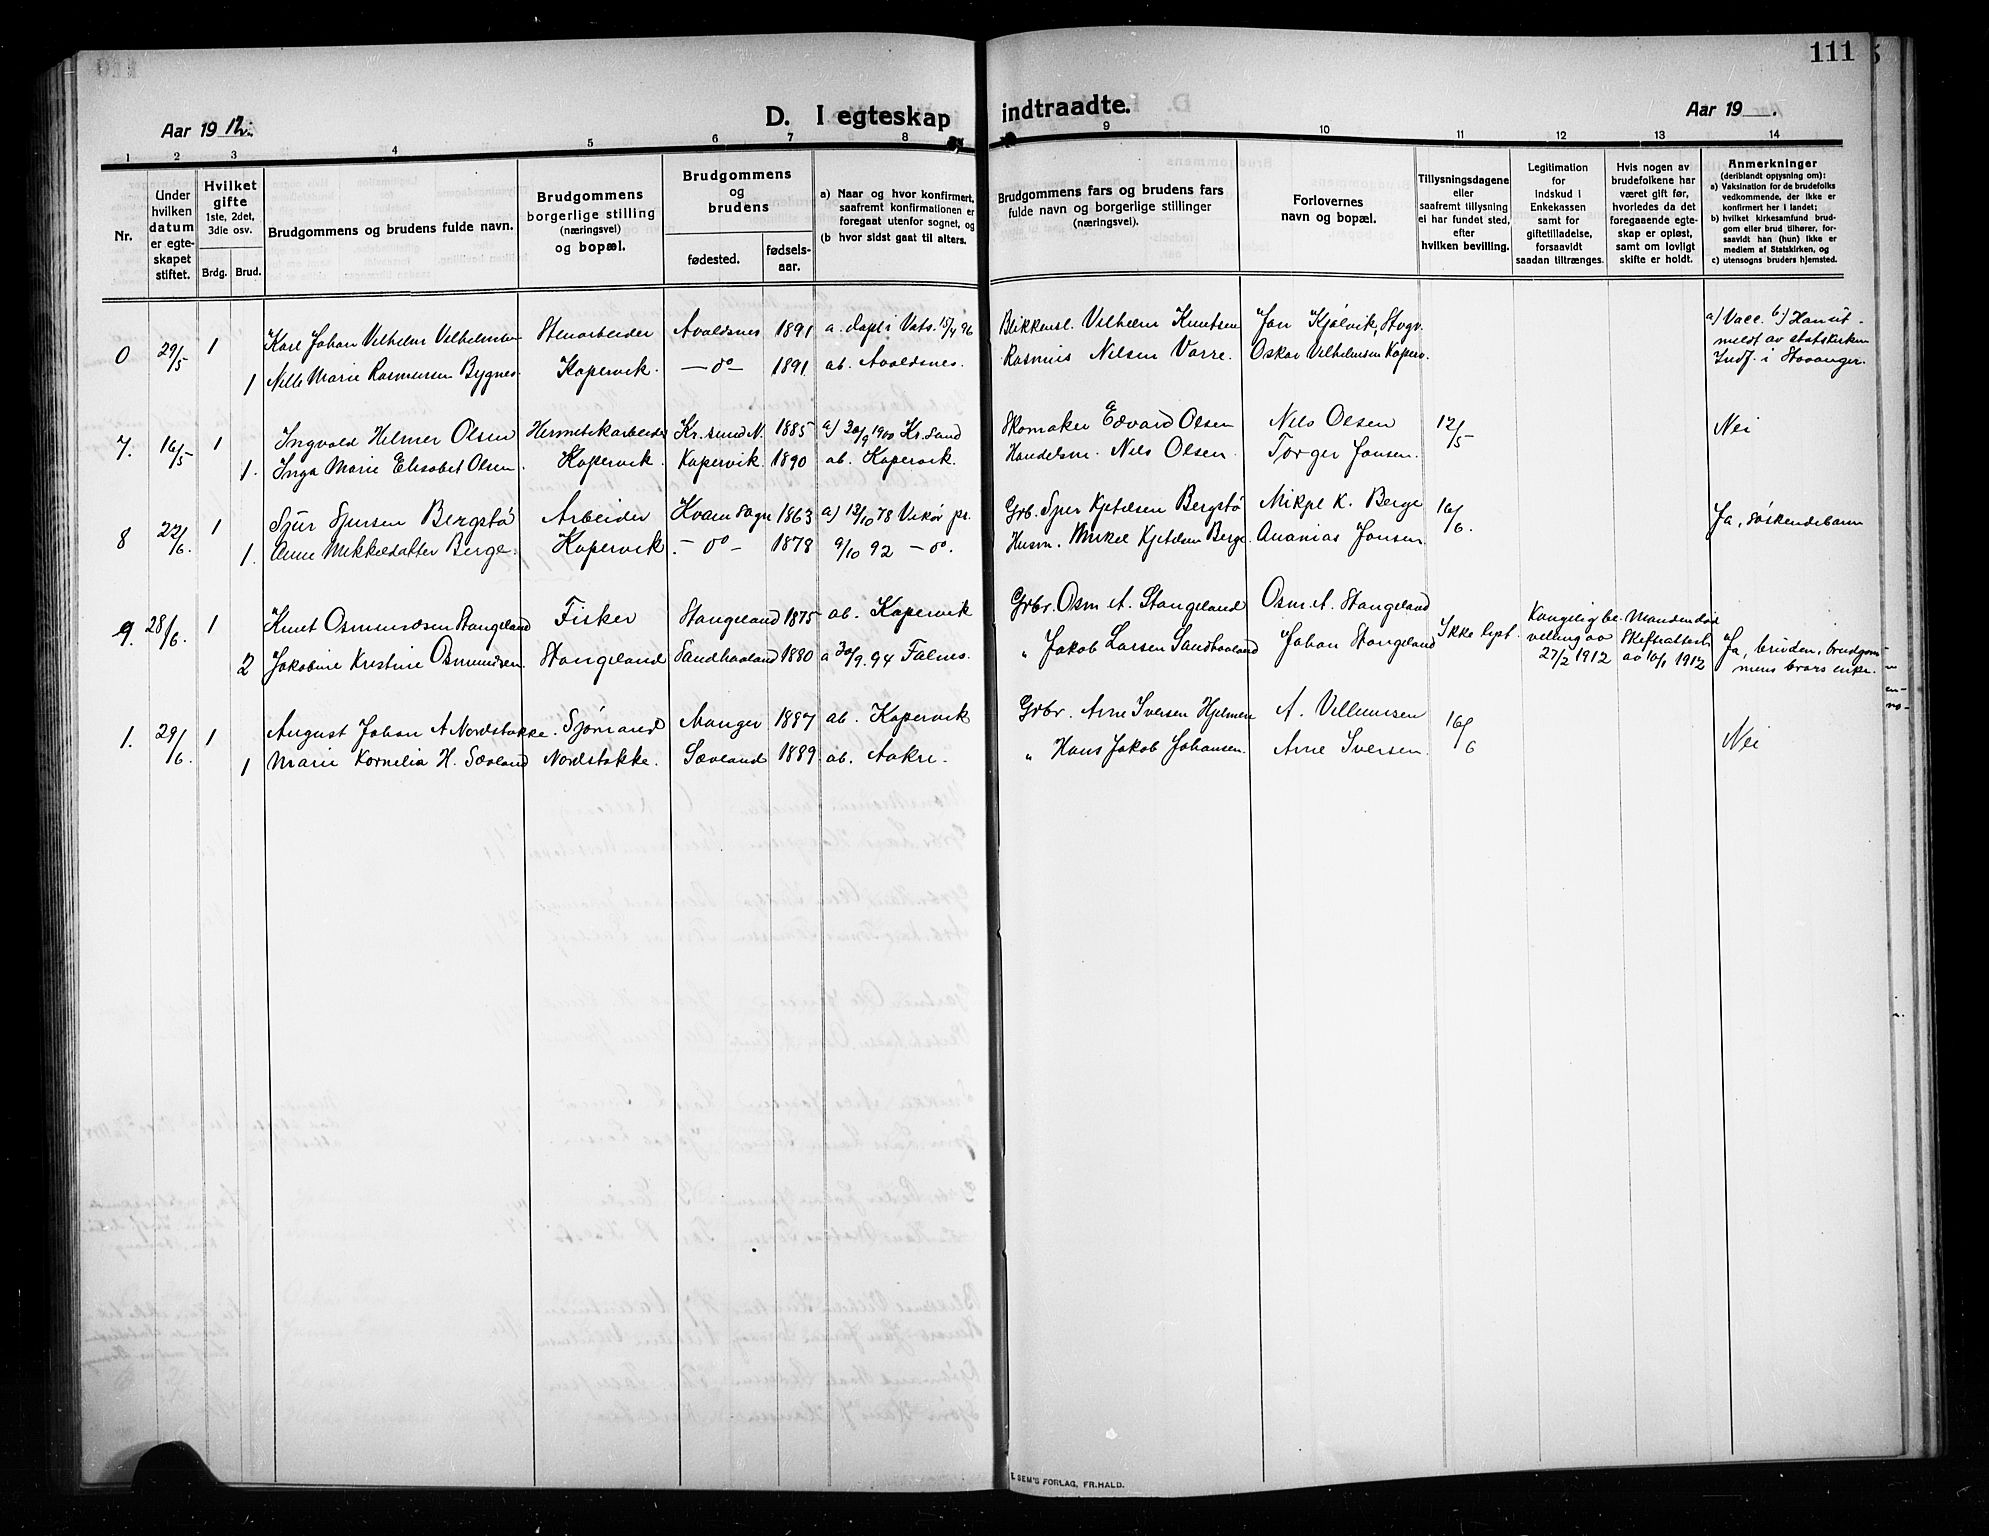 111
Aar 19 12.
D. I egteskap indtraadte.
Aar 19 .
1 2 3 4 5 6 7 8 9 10 11 12 13 14
Nr.
Under hvilken datum er egteskapet stiftet.
Hvilket gifte 1ste, 2det, 3die osv.
Brdg. Brud.
Brudgommens og brudens fulde navn.
Brudgommens borgerlige stilling (næringsvei) og bopæl.
Brudgommens og brudens
fødested.
fødselsaar.
a) Naar og hvor konfirmert, saafremt konfirmationen er foregaat utenfor sognet, og
(b hvor sidst gaat til alters.
Brudgommens fars og brudens fars fulde navn og borgerlige stillinger (næringsvei).
Forlovernes navn og bopæl.
Tillysningsdagene eller saafremt tillysning ei har fundet sted, efter hvilken bevilling.
Legitimation for Indskud i Enkekassen samt for giftetilladelse, forsaavidt saadan tiltrænges.
Hvis nogen av brudefolkene har været gift før, hvorledes da det foregaaende egteskap er opløst, samt om lovligt skifte er holdt.
Anmerkninger (deriblandt opysning om):
a) Vaksination for de brudefolks vedkommende, der ikke er konfirmert her i landet;
b) hvilket kirkesamfund brudgom eller brud tilhører, forsaavidt han (hun) ikke er medlem af Statskirken, og
c) utensogns bruders hjemsted.
0 29/5 1 Karl Johan Vilhelm Vilhelmsen Stenarbeider Avaldsnes 1891 a. døpt i Vats. 15/4 96 Blikkensl. Vilhelm Knutsen Jon Kjølvik, Skogv. a) Vacc. b) Han utmeldt av statskirken Indf. i Stavanger.
1 Nille Marie Rasmussen Bygnes. Kopervik. — do — 1891 ab. Avaldsnes. Rasmus Nilsen Vorre. Oskar Vilhelmsen Koperv.
7. 16/5 1 Ingvald Helmer Olsen Hermetikarbeider Kr.sund N. 1885 a) 30/9 1900 Kr.sund Skomaker Edvard Olsen Nils Olsen 12/5 Nei
1. Inga Marie Elisabet Olsen. Kopervik. Kopervik. 1890 ab. Kopervik. Handelsm. Nils Olsen. Torger Jonsen.
8 22/6. 1 Sjur Sjursen Bergstø Arbeider Kvam Sogn 1863 a) 13/10 78 Vikør pr. Grb. Sjur Kjetilsen Bergstø Mikjel K. Berge 16/6. Ja, søskendebarn
1. Anne Mikkelsdatter Berge. Kopervik. — do — 1878 9/10 92 — do. Husm. Mikel Kjetilsen Berge. Ananias Jonsen.
9. 28/6. 1 Knut Osmundsen Stangeland Fisker Stangeland 1875 ab. Kopervik Grbr. Osm. A. Stangeland Osm. A. Stangeland Ikke lyst. Kongelig bevilling av 27/2 1912 Manden død Skifteattest av 16/1 1912 Ja, bruden, brudgommens brors enke.
2 Jakobine Kristine Osmundsen. Stangeland Sandhaaland 1880 a 30/9. 94 Falnes. „ Jakob Larsen Sandhaaland Johan Stangeland
1. 29/6. 1 August Johan A Nordstokke. Sjømand Manger 1887 ab. Kopervik Grbr. Arne Iversen Hjelmen A. Villumsen 16/6 Nei
1 Marie Kornelia H. Sævland Nordstokke. Sævland 1889 ab. Aakre. „ Hans Jakob Johansen. Arne Iversen.
E. SEM'S FORLAG, FR.HALD.